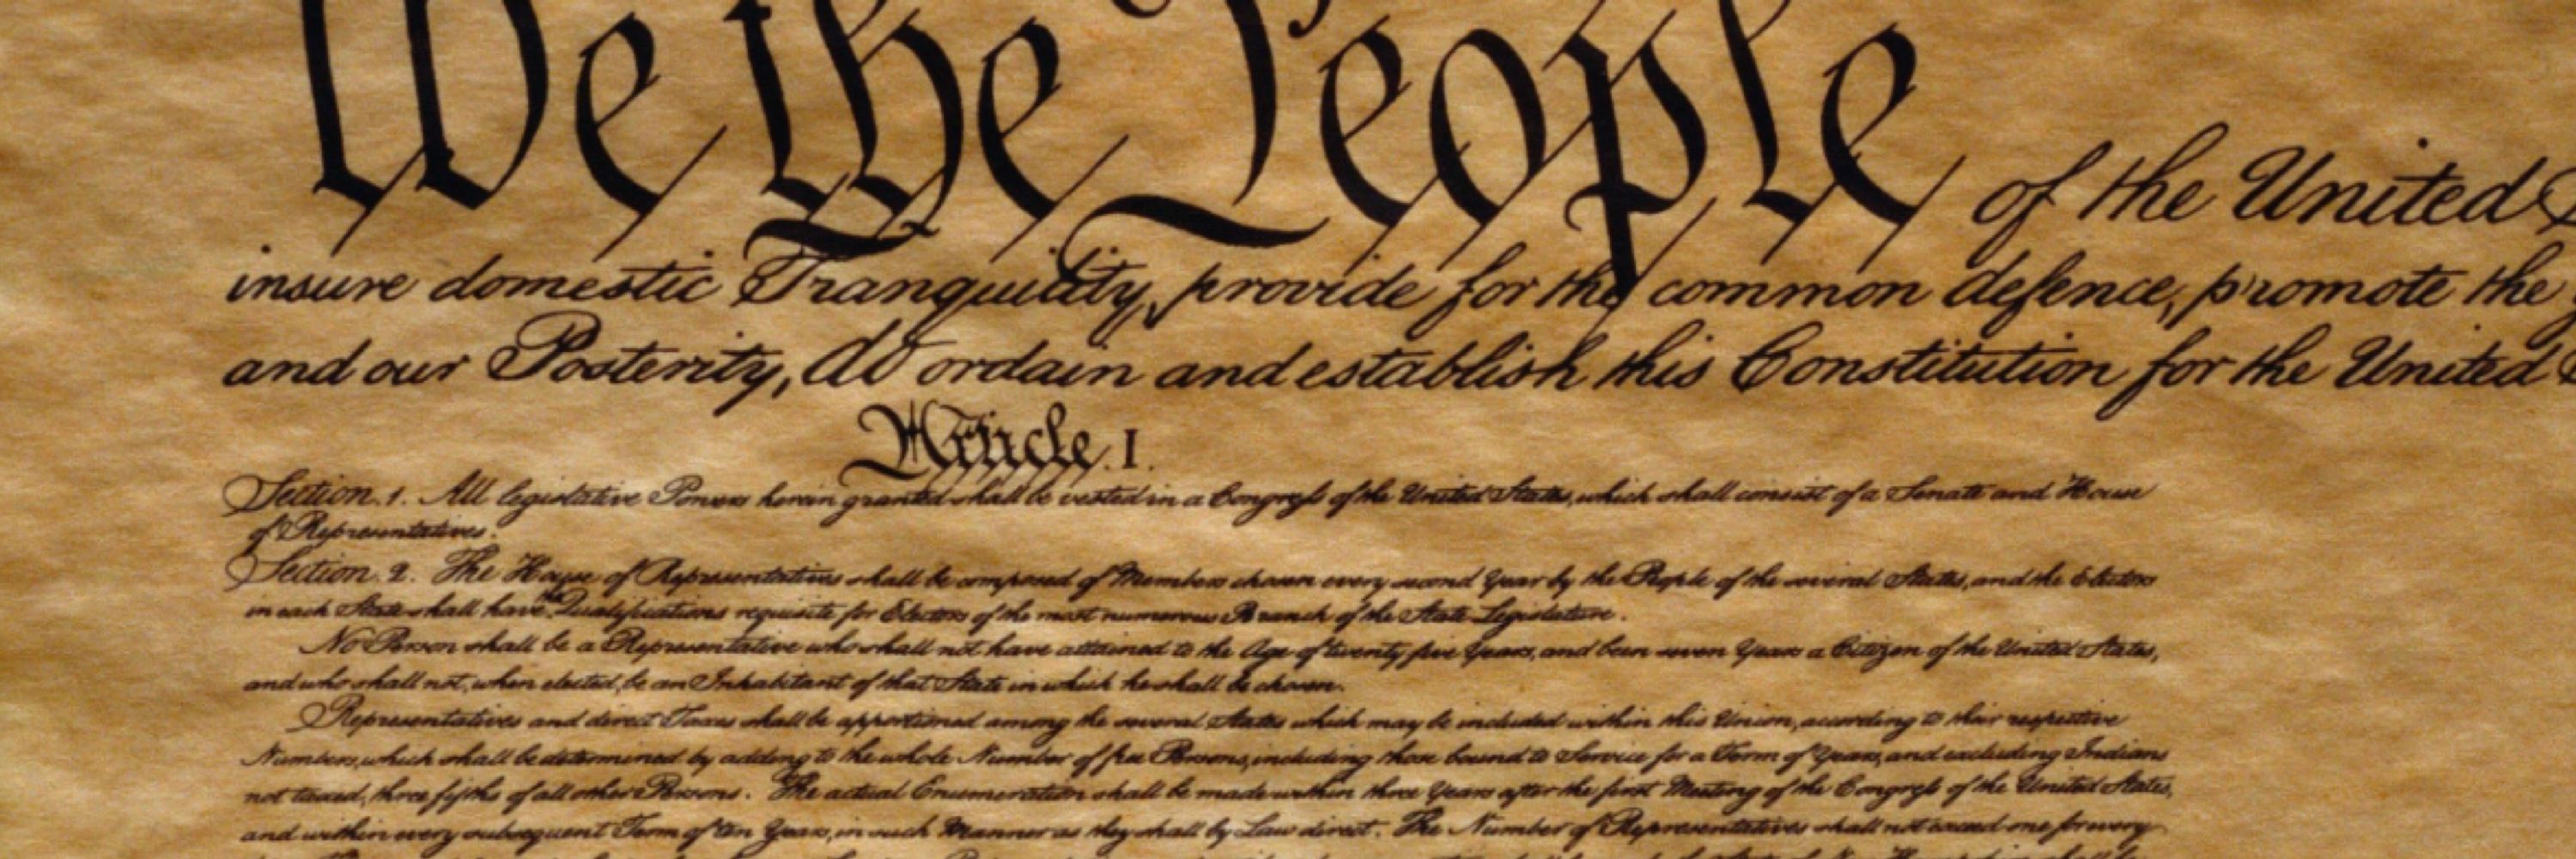 We the People of the United
insure domestic Tranquility, provide for the common defence, promote the
and our Posterity, do ordain and establish this Constitution for the United
Article. I.
Section. 1. All legislative Powers herein granted shall be vested in a Congress of the United States, which shall consist of a Senate and House
of Representatives.
Section. 2. The House of Representatives shall be composed of Members chosen every second Year by the People of the several States, and the Electors
in each State shall have the Qualifications requisite for Electors of the most numerous Branch of the State Legislature.
No Person shall be a Representative who shall not have attained to the Age of twenty five Years, and been seven Years a Citizen of the United States,
and who shall not, when elected, be an Inhabitant of that State in which he shall be chosen.
Representatives and direct Taxes shall be apportioned among the several States which may be included within this Union, according to their respective
Numbers, which shall be determined by adding to the whole Number of free Persons, including those bound to Service for a Term of Years, and excluding Indians
not taxed, three fifths of all other Persons. The actual Enumeration shall be made within three Years after the first Meeting of the Congress of the United States,
and within every subsequent Term of ten Years, in such Manner as they shall by Law direct. The Number of Representatives shall not exceed one for every